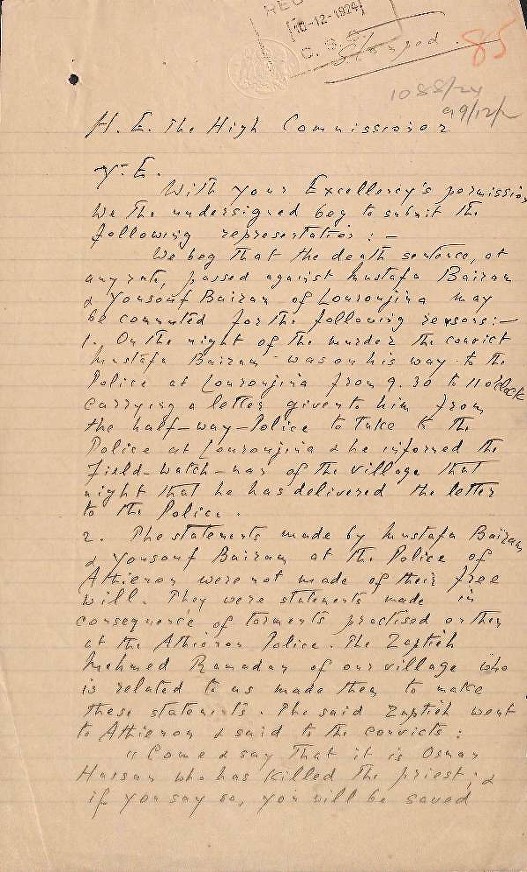 REC
10-12-1924
C. S.
Stamped.
85
1088/24
99/12/2
H. E. The High Commissioner
Y. E.
With your Excellency's permission
We the undersigned beg to submit the
following representation : -
We beg that the death sentence, at
any rate, passed against Mustafa Bairam
& Yousouf Bairam of Louroujina may
be commuted for the following reasons:-
1. On the night of the murder the convict
Mustafa Bairam was on his way to the
Police at Louroujina from 9.30 to 11 o'clock
carrying a letter given to him from
the half-way-Police to take to the
Police at Louroujina & he informed the
field-watch-man of the village that
night that he has delivered the letter
to the Police.
2. The statements made by Mustafa Bairam
& Yousouf Bairam at the Police of
Athienou were not made of their free
will. They were statements made in
consequence of torments practised on them
at the Athienou Police. The Zaptieh
Mehmed Ramadan of our village who
is related to us made them to make
these statements. The said Zaptieh went
to Athienou & said to the convicts :
"Come & say that it is Osman
Hassan who has killed the priest; &
if you say so, you will be saved